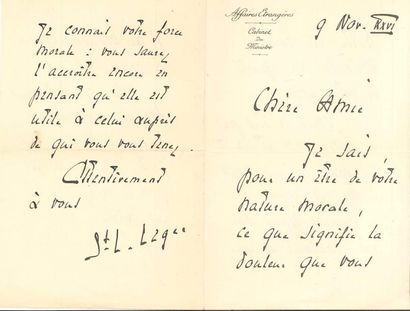 Affaires Etrangères
Cabinet
du
Ministre
9 Nov. XXVI
Chère Amie
Je sais,
pour un être de votre
nature morale,
ce que signifie la
douleur que vous
Je connais votre force
morale : vous saurez
l'accroître encore en
pensant qu'elle est
utile à celui auprès
de qui vous vous tenez.
Attentivement
à vous
St. L. Léger